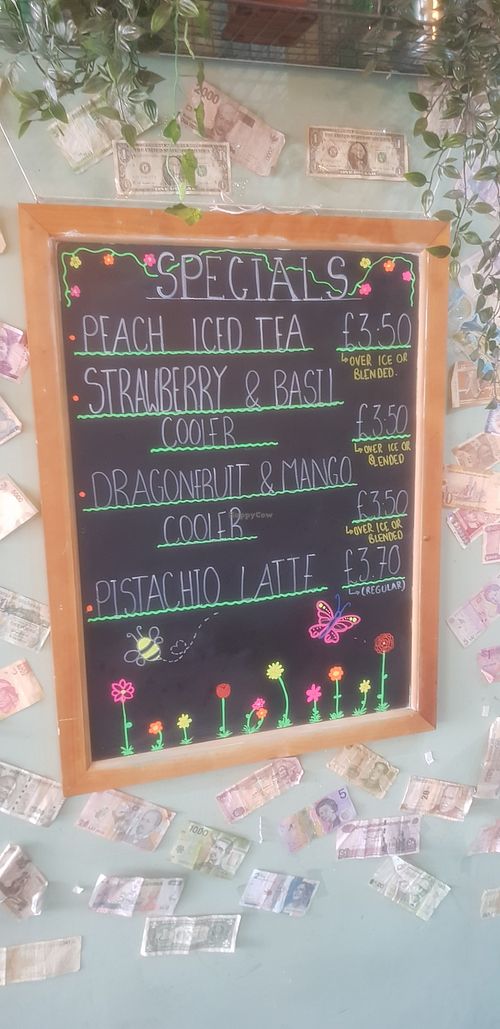 SPECIALS
PEACH ICED TEA £3.50
OVER ICE OR
BLENDED.
STRAWBERRY & BASIL
COOLER £3.50
OVER ICE OR
BLENDED
DRAGONFRUIT & MANGO
COOLER £3.50
OVER ICE OR
BLENDED
PISTACHIO LATTE £3.70
(REGULAR)
HappyCow
2000
1000
5
20